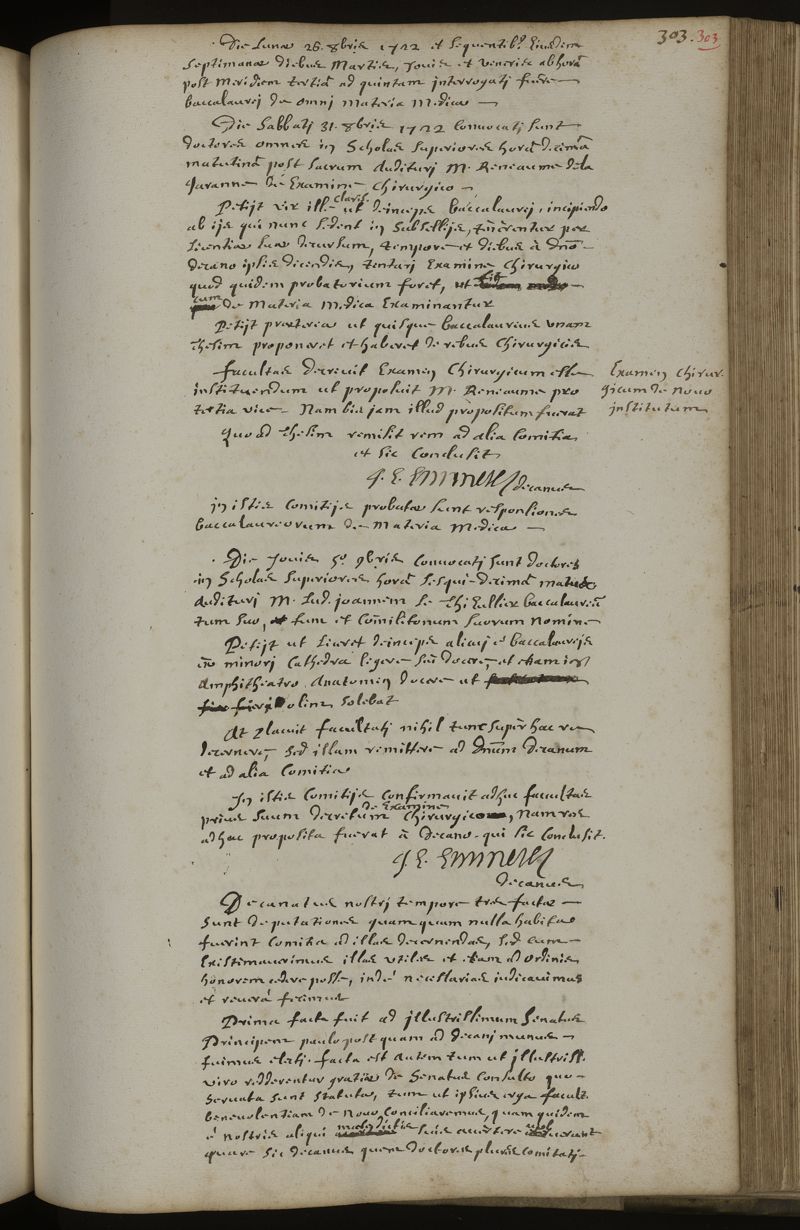 303. 303
Die Lunae 26. 8bris 1722 et sequentib9 Eiusdem
septimanae diebus Martis, Jovis et Veneris ab horâ
post Meridiem tertiâ ad quintam interrogatj fuêre
baccalaurej de omnj Materia Medica —
Die Sabbatj 31. 8bris 1722 Convocatj sunt
doctores omnes in Scholas superiores horâ decimâ
matutinâ post sacrum auditurj M. Reneaume dela
Garanne de Examine Chirurgico —
Petijt vir ille claris. ut deinceps baccalaurej, incipiendo
ab ijs qui nunc sedent in subsellijs, tenerentur per
licentiae suae decursum, tempore et diebus à dno
decano ipsis dicendis, tentarj Examine Chirurgico
quod quidem probatorium foret, ut
cum de Materia Medica Examinantur
Petijt praeterea ut quisque baccalaureus unam
thesim proponeret et haberet de rebus Chirurgicis
Facultas decrevit Examen Chirurgicum esse
instituendum ut proposuit M. Reneaume pro
tertia vice. Nam bis jam illud propositum fuerat
Examen Chirur-
gicum de novo
institutum
Quoad thesim remisit rem ad alia Comitia
et sic Conclusit
decanus
in istis Comitijs probatae sunt responsiones
baccalaureorum de Materia Medica —
Die Jovis 5o 9bris Convocatj sunt doctores
in Scholas superiores horâ sesqui-decimâ matut.
auditurj M. Lud. joannem Le Thieullier baccalaurea
tum suo, tum et Comilitonum suorum nomine
Petijt ut liceret deinceps alicuj è baccalaureis
in minorj Cathedra legere seu docere, et etiam in
Amphitheatro Anatomen docere ut
olim solebat
At placuit facultatj nihil tunc super hac re
decernere, sed illam remittere ad Dnum Decanum
et ad alia Comitia
In istis Comitijs Confirmavit adhuc facultas
prius suum decretum de Examine Chirurgico, nam res
adhuc proposita fuerat à Decano. qui sic Conclusit.
decanus
Decanatus nostrj tempore tres factae —
sunt deputationes quamquam nulla habita
fuerint Comitia ad illas decernendas, sed cum
Existimaverimus illas utiles et etiam ad Ordinis
honorem cedere posse, inde necessarias iudicavimus
et reverâ fecimus
Prima facta fuit ad jllustrissimum Senatus
Principem paulo post quam ad decanj munus —
fuimus electj. facta est autem tum ut jllustriss.
viro redderentur gratiae de Senatus Consulto quo
servata sunt statuta, tum ut ipsius erga facult.
benevolentiam de novo Conciliaremus, quam quidem
è nostris aliqui suis avertere
quare sic decanus quem doctores plures Comitatj